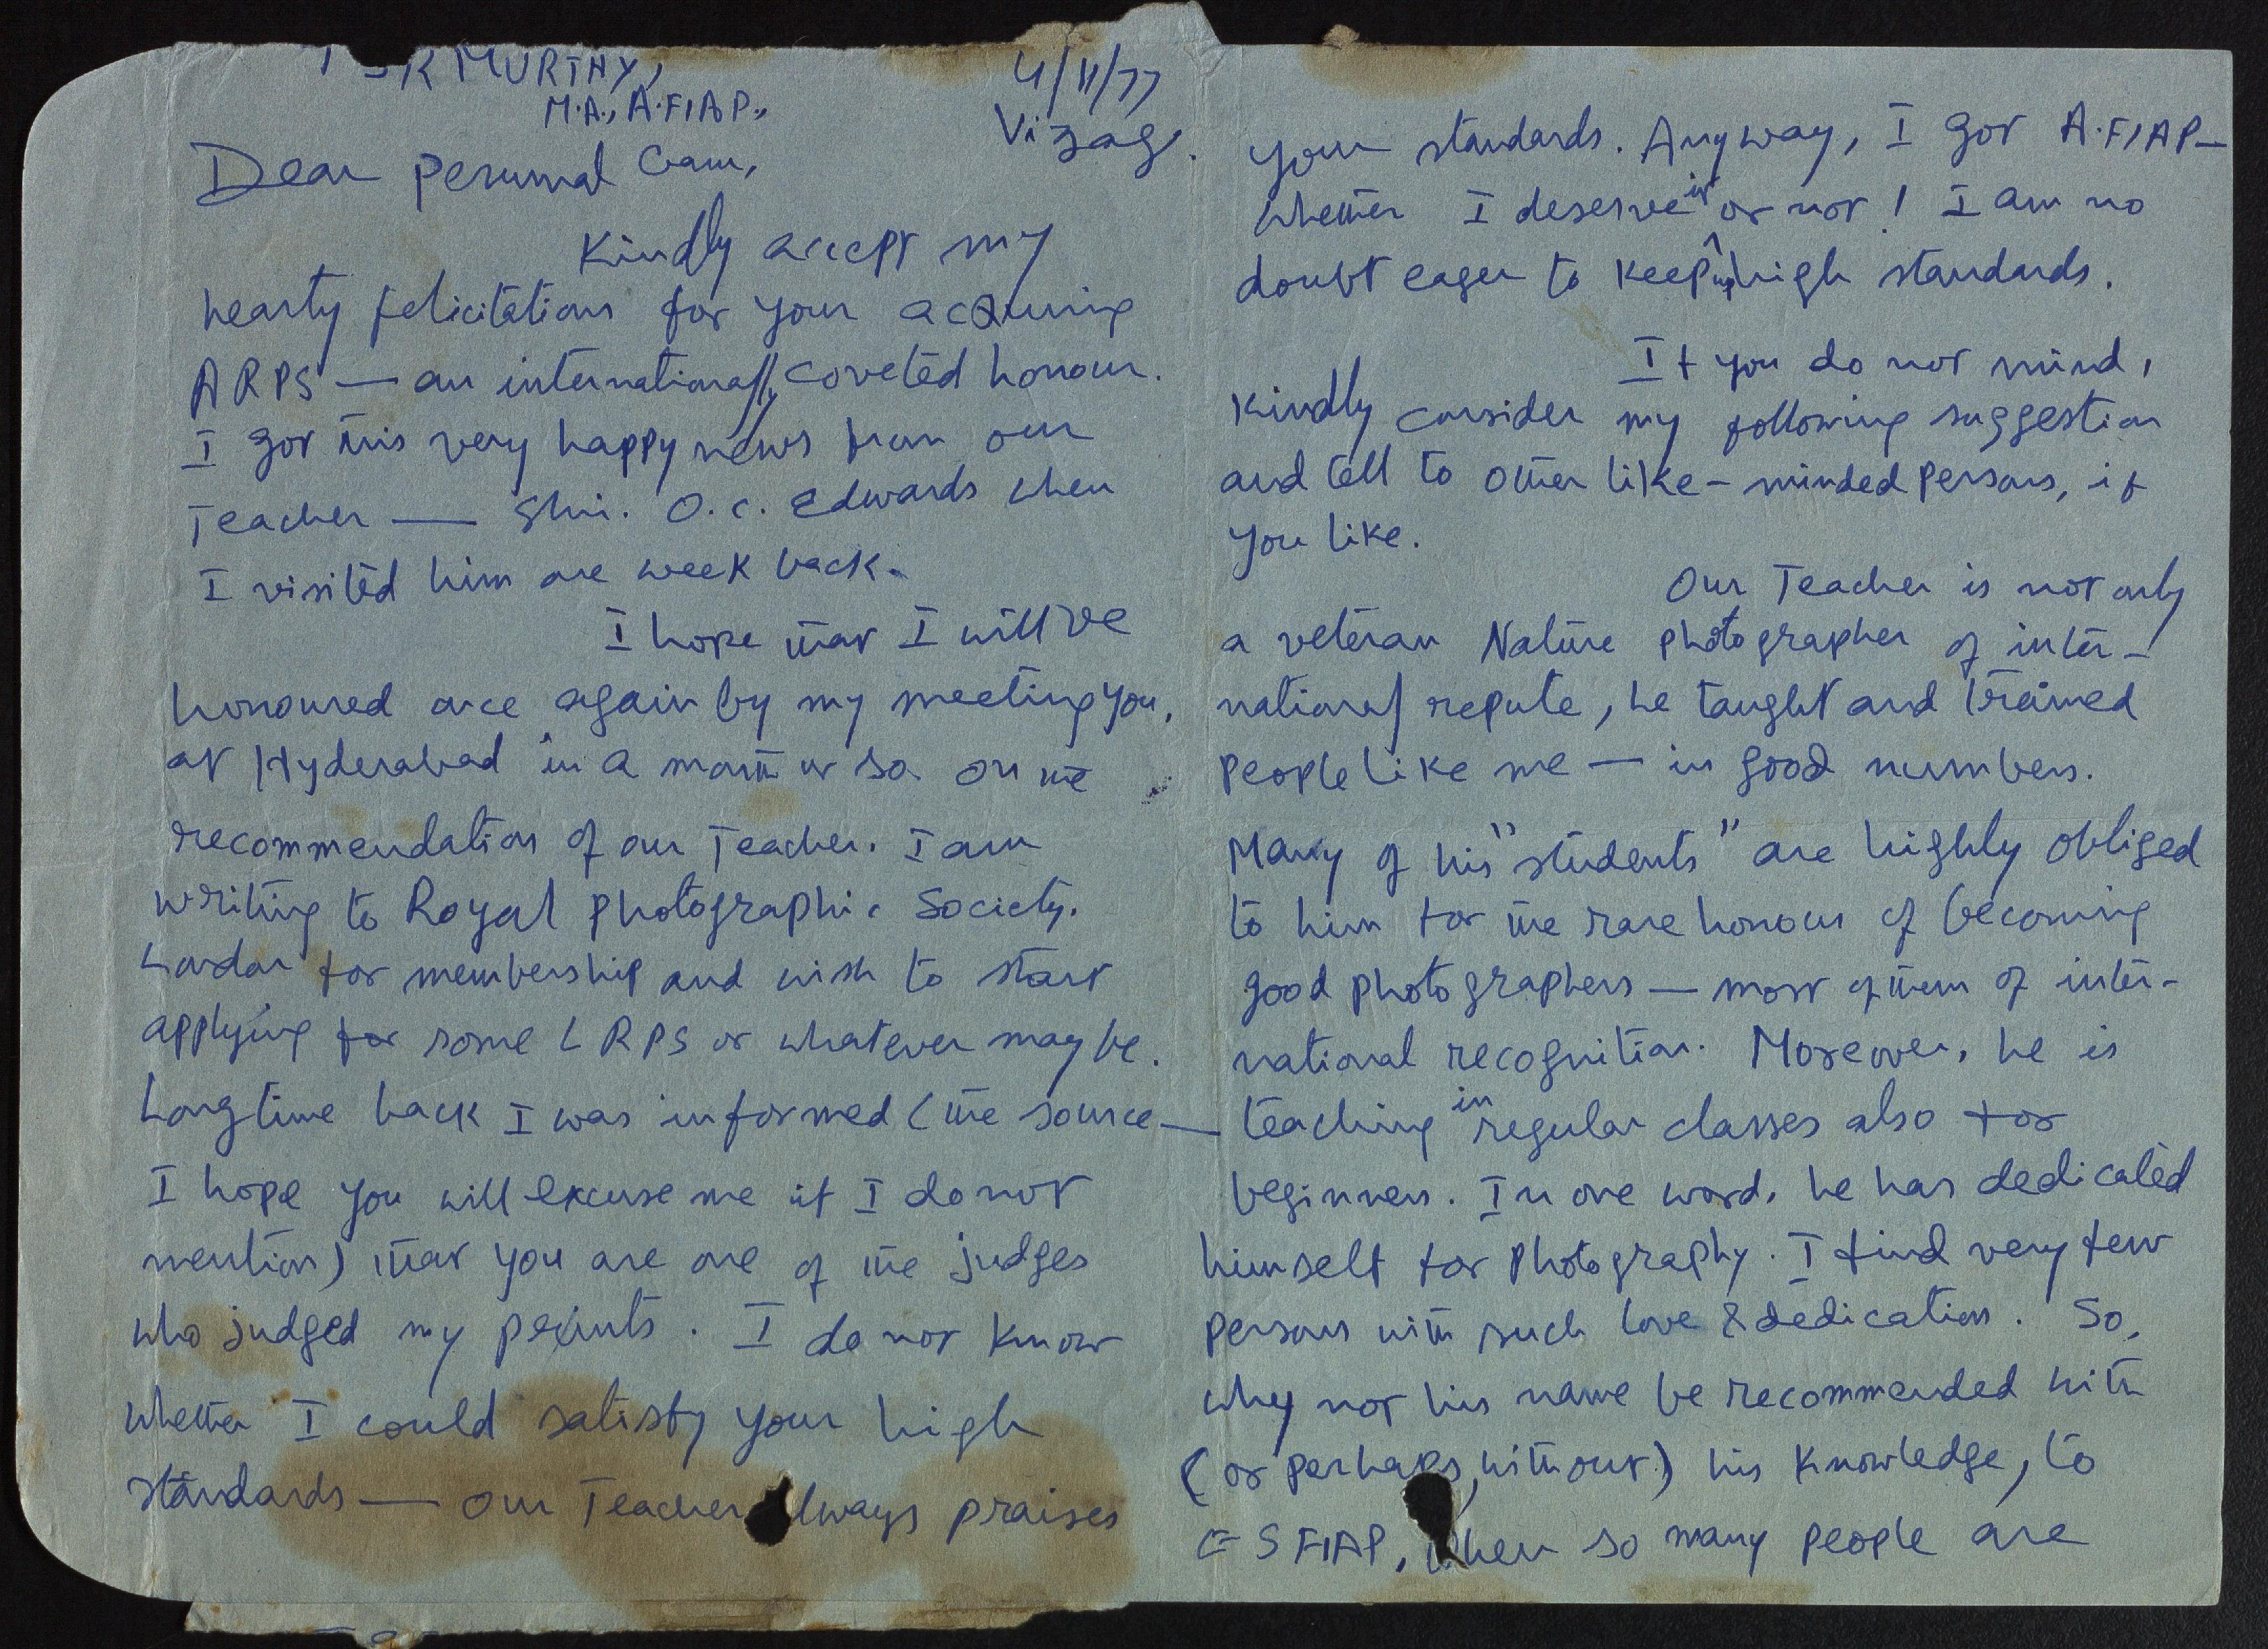 K MURTHY,
M.A., A.FIAP.,
4/11/77
Vizag.
Dear Perumal Garu,
Kindly accept my
hearty felicitations for your acquring
ARPS — an internationally coveted honour.
I got this very happy news from our
Teacher — Shri. O.C. Edwards when
I visited him one week back.
I hope that I will be
honoured once again by my meeting you,
at Hyderabad in a month or so. On the
recommendation of our Teacher. I am
writing to Royal Photographic Society.
London for membership and wish to start
applying for some LRPS or whatever may be.
Long time back I was informed (the source —
I hope you will excuse me if I do not
mention) that you are one of the judges
who judged my prints. I do not know
whether I could satisfy your high
standards — our Teacher always praises
your standards. Anyway, I got A.FIAP —
whether I deserve it or not! I am no
doubt eager to keep up high standards.
If you do not mind,
kindly consider my following suggestion
and tell to other like-minded persons, if
you like.
Our Teacher is not only
a veteran Nature photographer of inter-
national repute, he taught and trained
people like me — in good numbers.
Many of his "students" are highly obliged
to him for the rare honour of becoming
good photographers — most of them of inter-
national recognition. Moreover, he is
teaching in regular classes also for
beginners. In one word, he has dedicated
himself for photography. I find very few
persons with such love & dedication. So,
why not his name be recommended with
(or perhaps, without) his knowledge, to
ESFIAP, when so many people are